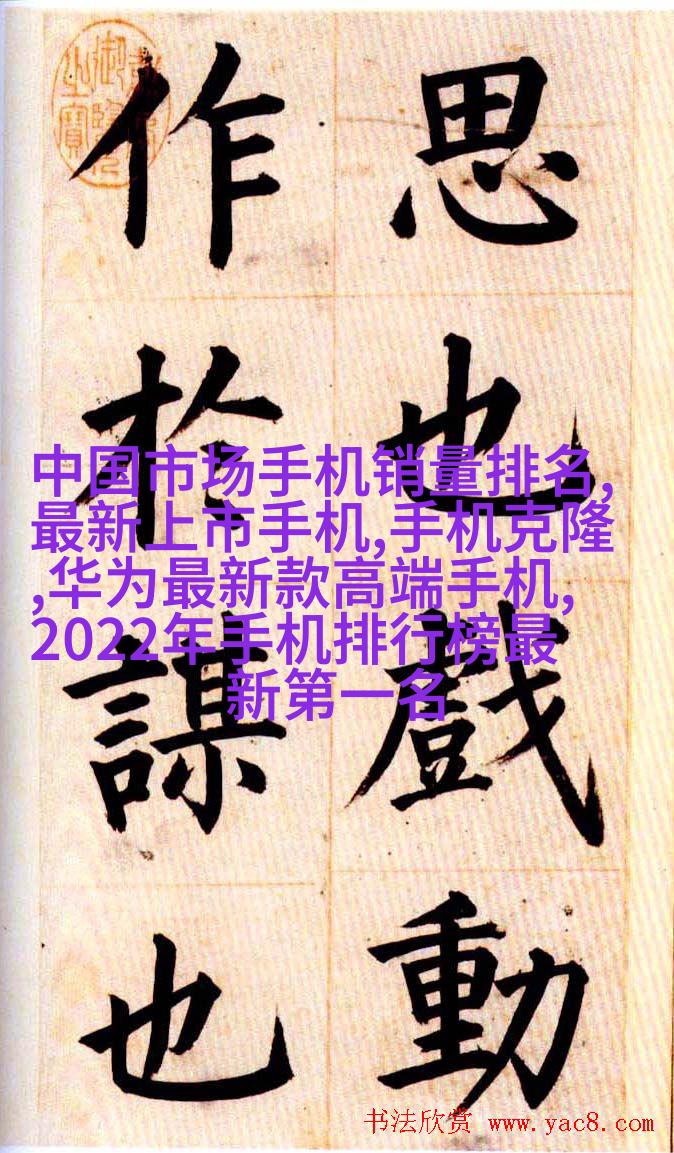 思也戲動
作於謀也
中国市场手机销量排名,
最新上市手机,手机克隆
,华为最新款高端手机,
2022年手机排行榜最
新第一名
书法欣赏 www.yac8.com